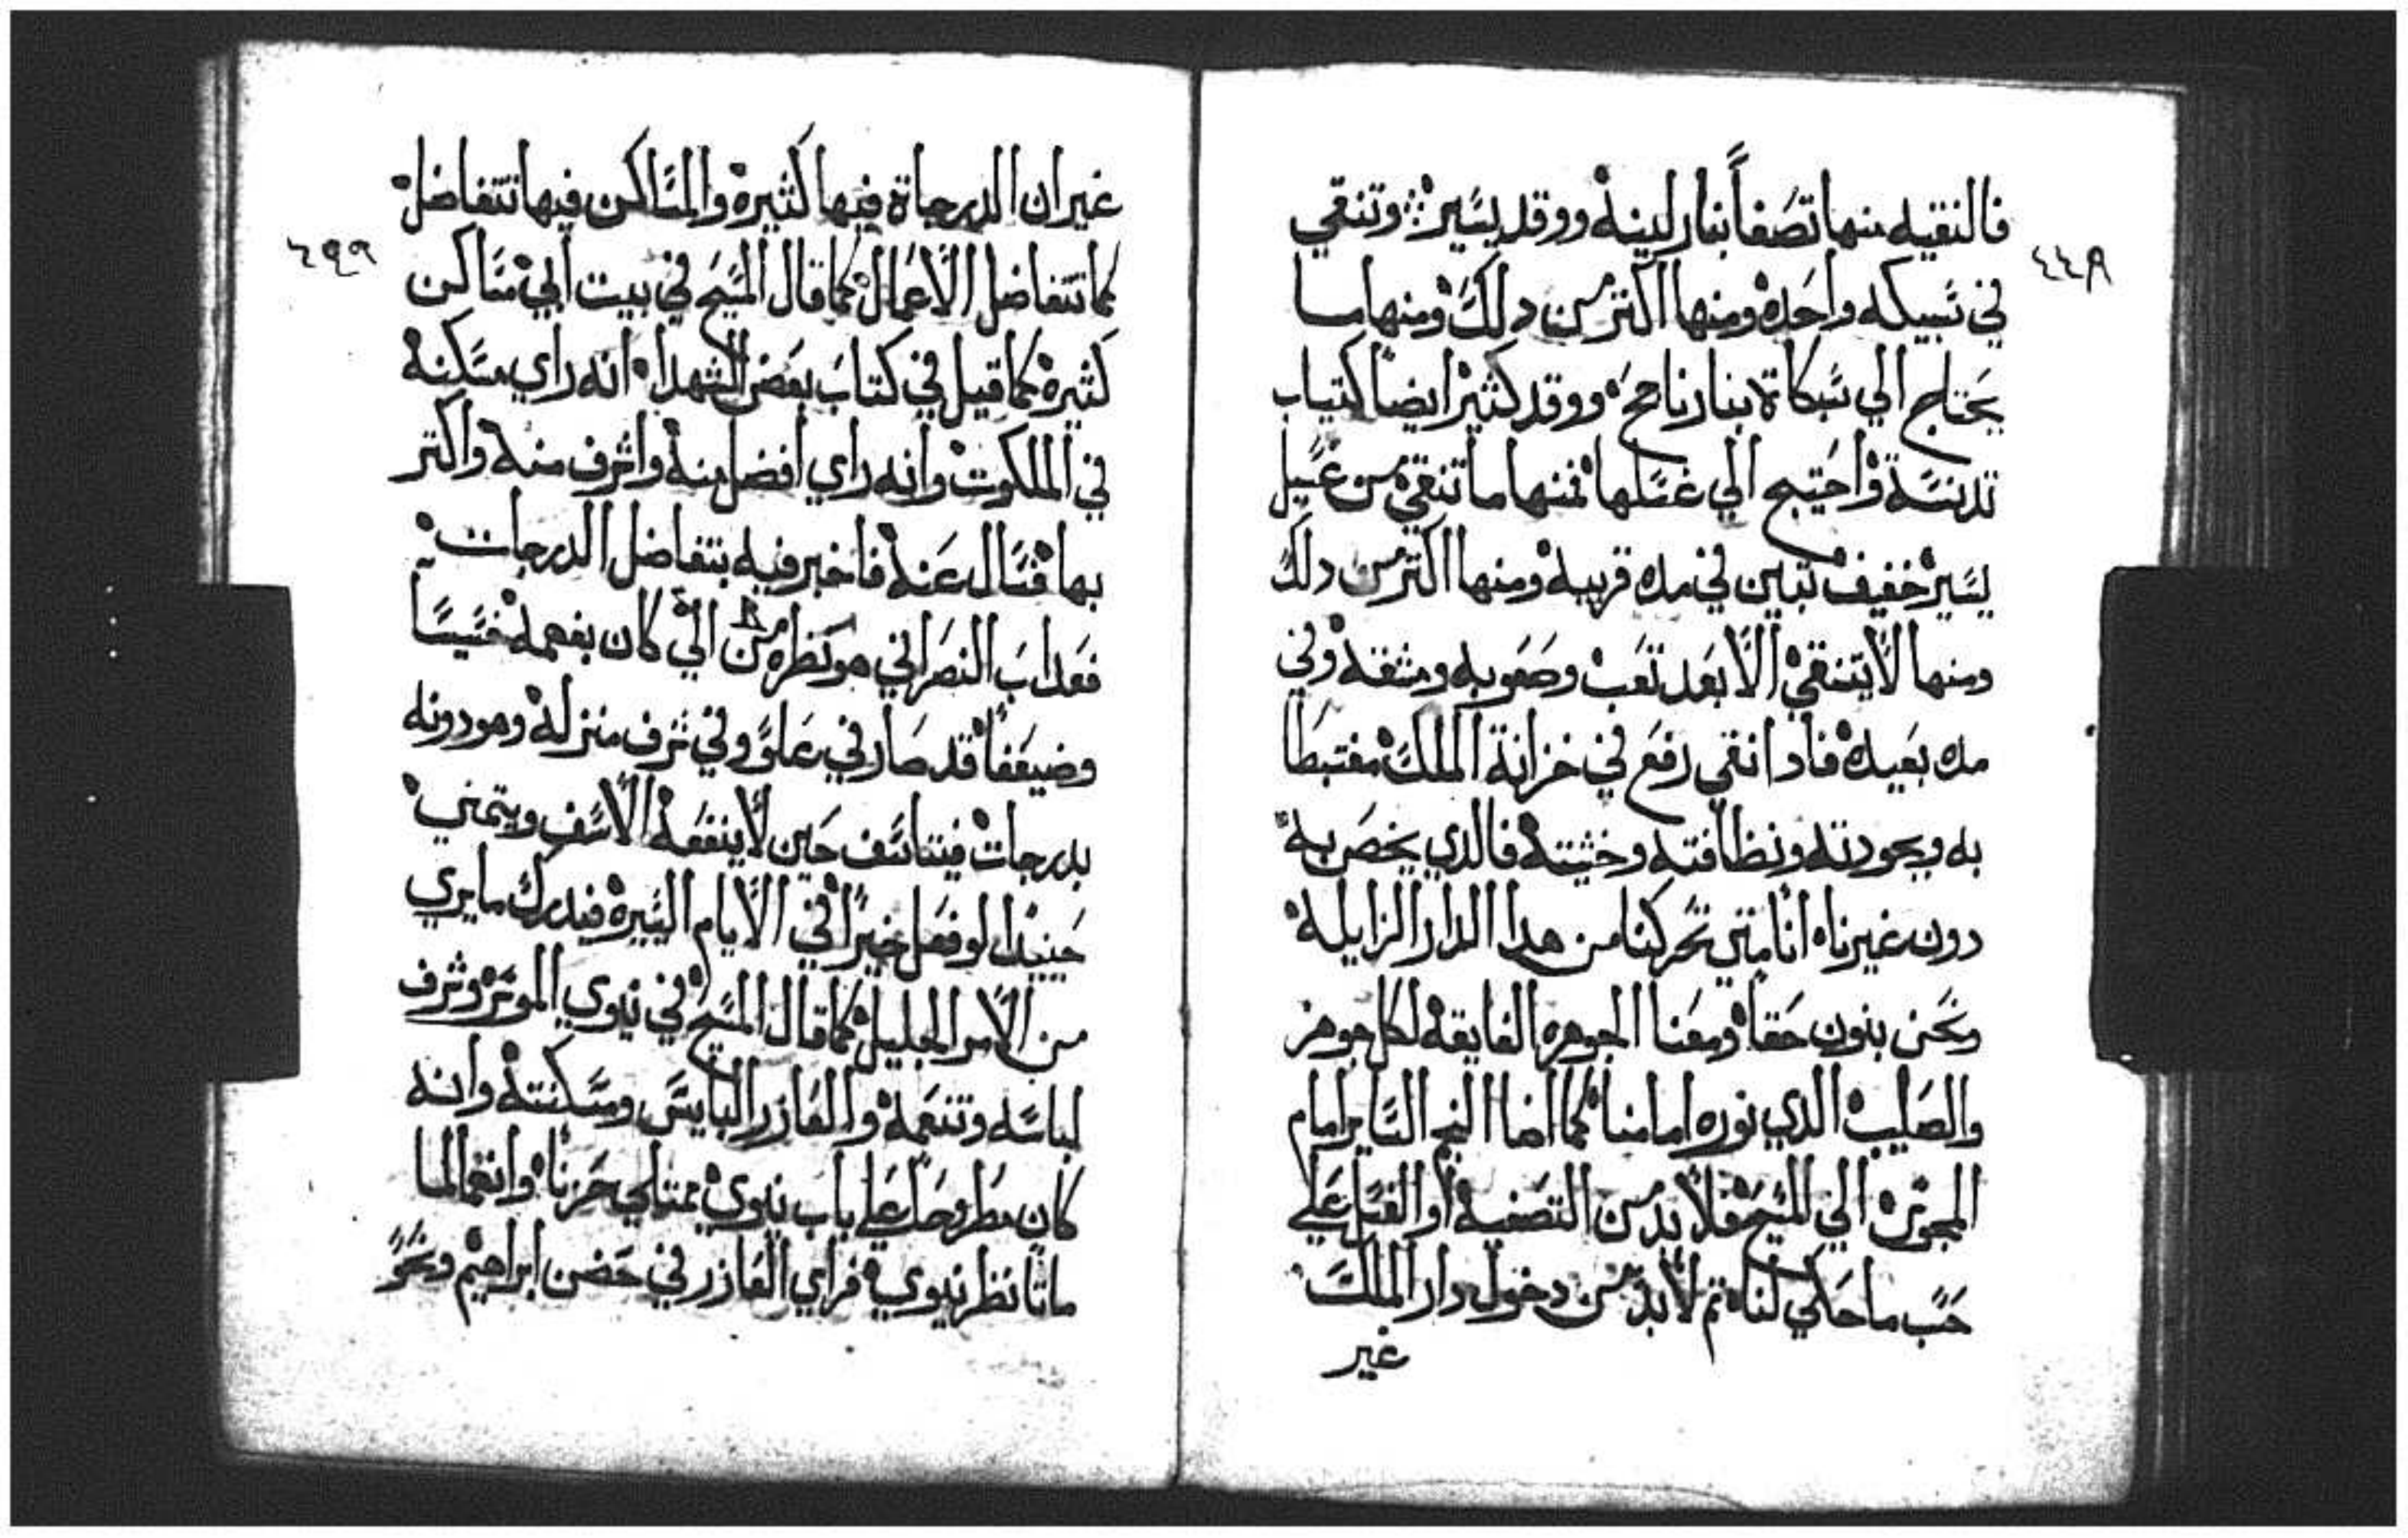 فالنقيه منها تصَفاً بنار لينه ووقد يسَير وتنقي
٤٤٩
في سَبيكه واحَده ومنها اكتر من دلك ومنها ما
يحَتاج الي سَبكاة بنار ناجحه ووقد كثير ايضاً كتياب
تدنسَة واحَتيج الي غسَلها فمنها ما تنقي من غسَيل
يسَير خفيف تبين في مده قريبه ومنها اكتر من دلك
ومنها لا يتنقي الا بعَد تعَب وصَعَوبه ومشقه وفي
مده بعَيده فادا نقي رفعَ في خزانة الملك مغتبطا
به وبجودته ونظافته وخشيته فالدي يخصَ به
دون غيرناه انا متي تحَركنا من هدا الدار الزايله
ونحَن بنون حَقا ومعَنا الجوهره الفايقه لكل جوهر
والصَليب الدي نوره امامنا كما اضا النجم السَاير امام
المجوسَ الي المسَيح فلا بد من التصَفيه او الغسَل عَلي
حَسَب ما حَكي لناه تم لا بد من دخول دار الملك
غير
غير ان الدرجاة فيها كثيره والمسَاكن فيها تتفاضل
٤٩٩
كما تتفاضل الاعَمال كما قال المسَيح في بيت ابي مسَاكن
كثيره كما قيل في كتابَ بعَض الشهدا انه راي مسَكنه
في الملكوت وانه راي افضل منه واشرف منه واكتر
بها فسَال عَنه فاخبر فيه بتفاضل الدرجات
فعَدابَ النصَراني هو نظره من الي كان بفهمه خسَيسَا
وضيعَفاً قد صَار في عَلوّ وفي شرف منزله وهو دونه
بدرجات فيتاسَف حَين لا ينفعَه الاسَف ويتمني
حَينيدا لو فعَل خيرًا في الايام اليسَيره فيدرك ما يري
من الامر الجليل كما قال المسَيح في نيوي الموسَر وشرف
لباسَه وتنعَمه والعَازر البايسَ ومسَكنته وانه
كان مطروحَا علي باب نيوي ممتلي حَزنا وانغما لما
ماتا نظر نيوي فراي العَازر في حَضن ابراهيم ونحَوَ